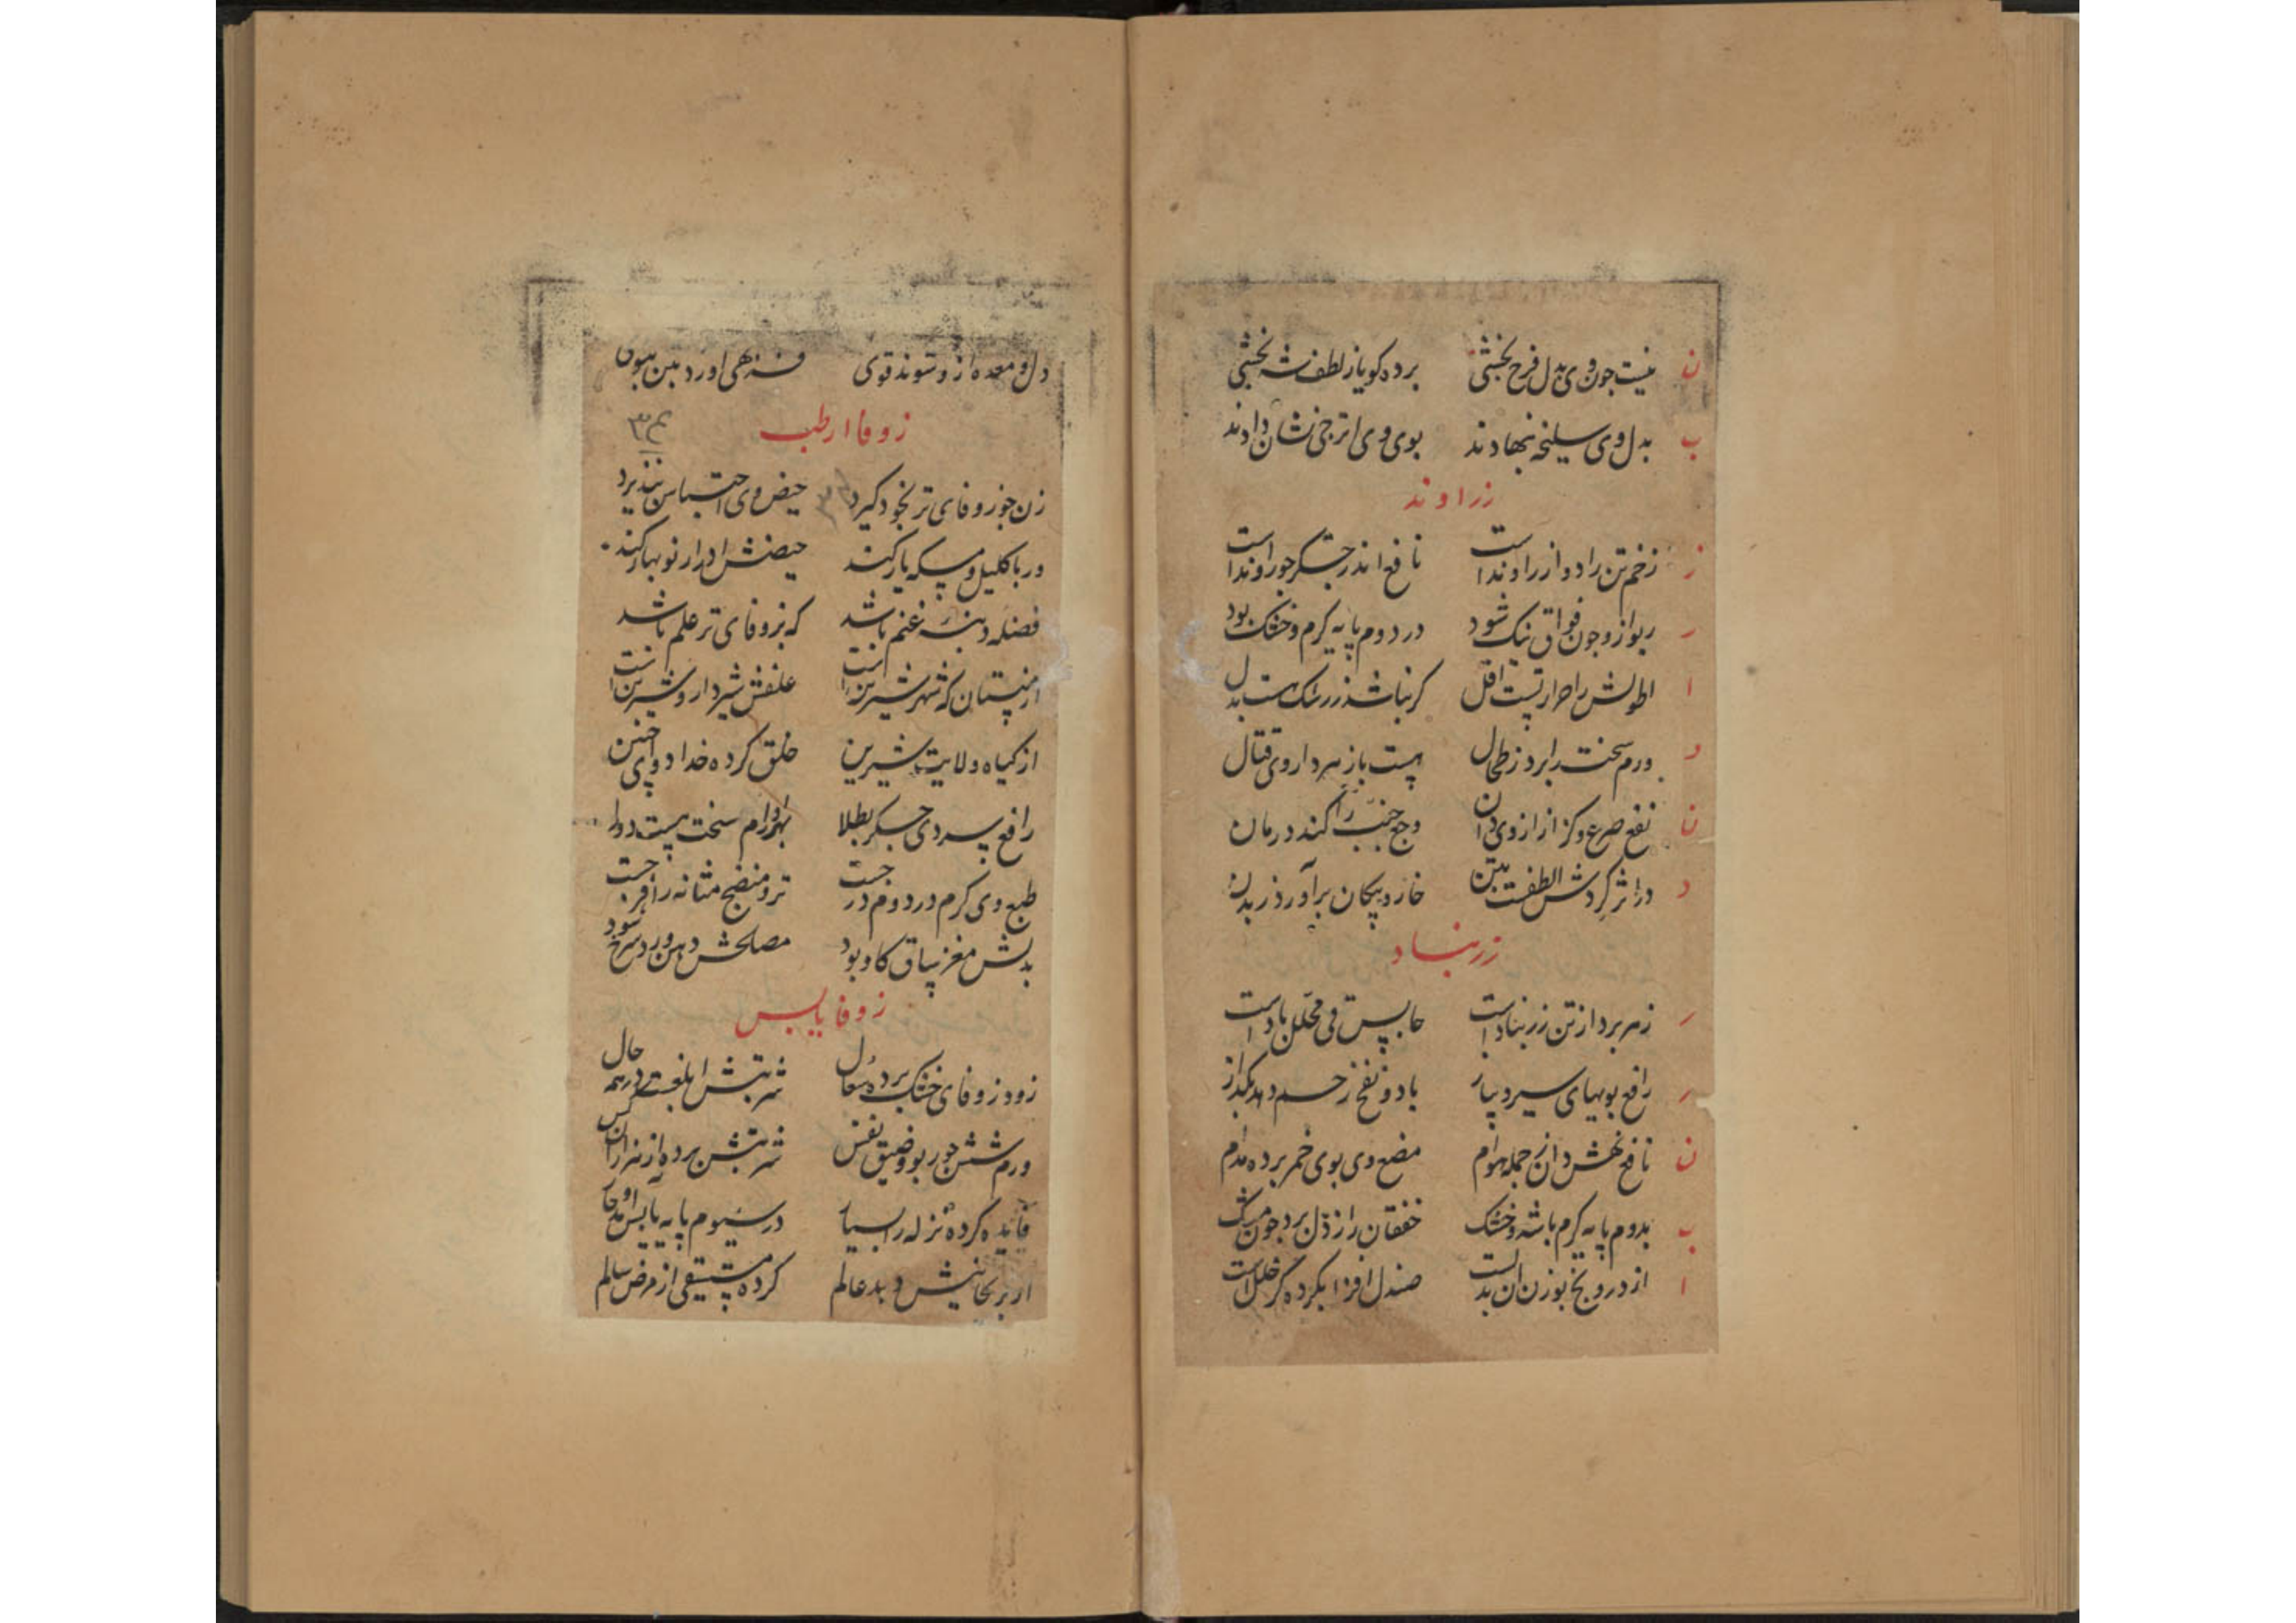 ن نیست چون وی بدل فرح بخشی برده کویا ز لطف شه بخشی
ب بدل وی سلیخه بنهادند بوی وی اترجی نشان دادند
زراوند
ز زخم تن را دوا زراوند است نافع اندر جگر چو راوند است
ر ربو ازو چون فواق نیک شود در دوم پایه کرم و خشک بود
ا اطولش را حرارتست اقل کر نباشد زرنک هست بدل
د ورم سخت را برد ز طحال هست با زهر داروی قتال
ن نفع صرع و کزاز ازوی دان وجع جنب را کند درمان
د در اثر کردش الطفست ببین خار و پیکان برآورد ز بدن
زرنباد
ز زهر برد از تن زرنباد است حابس قی محلل باد است
ر رافع بویهای سیر و پیاز باد و نفخ ز حسم دهد بکداز
ن نافع نهش دان ز جمله هوام مضغ وی بوی خمر برده مدام
ب بدوم پایه کرم باشد و خشک خفقان را ز دل برد چون مشک
ا از درونج بوزن آن بدلست صندل افزا بکرده کر خللست
دل و معده ازو شوند قوی
زوفا ارطب
زن چو زوفای تر بخود کیرد حیض وی احتباس نپذیرد
ور با کلیل و مسکه یار کند حیضش ادرار نوبهار کند
فضله دنبه غنم باشد که بزوفای تر علم باشد
ارمنستان که شهر شیرین است علفش شیردار و شیرین است
از کیاه ولایت شیرین خلق کرده خدا دوای چنین
رافع سردی جکر بطلا بهر اورام سخت هست دوا
طبع وی کرم در دوم درجست تر و منضج مثانه را فرجست
بدلش مغز ساق کاو بود مصلحش دهن ورد سرخ شود
زوفا یابس
زود زوفای خشک برده سعال شربتش ابلغست در همه حال
ورم شش چو ربو و ضیق نفس شربتش برده از هزاران کس
فایده کرده نزله را بسیار در سیوم پایه یابس او حار
کرده مستسقی از مرض سالم